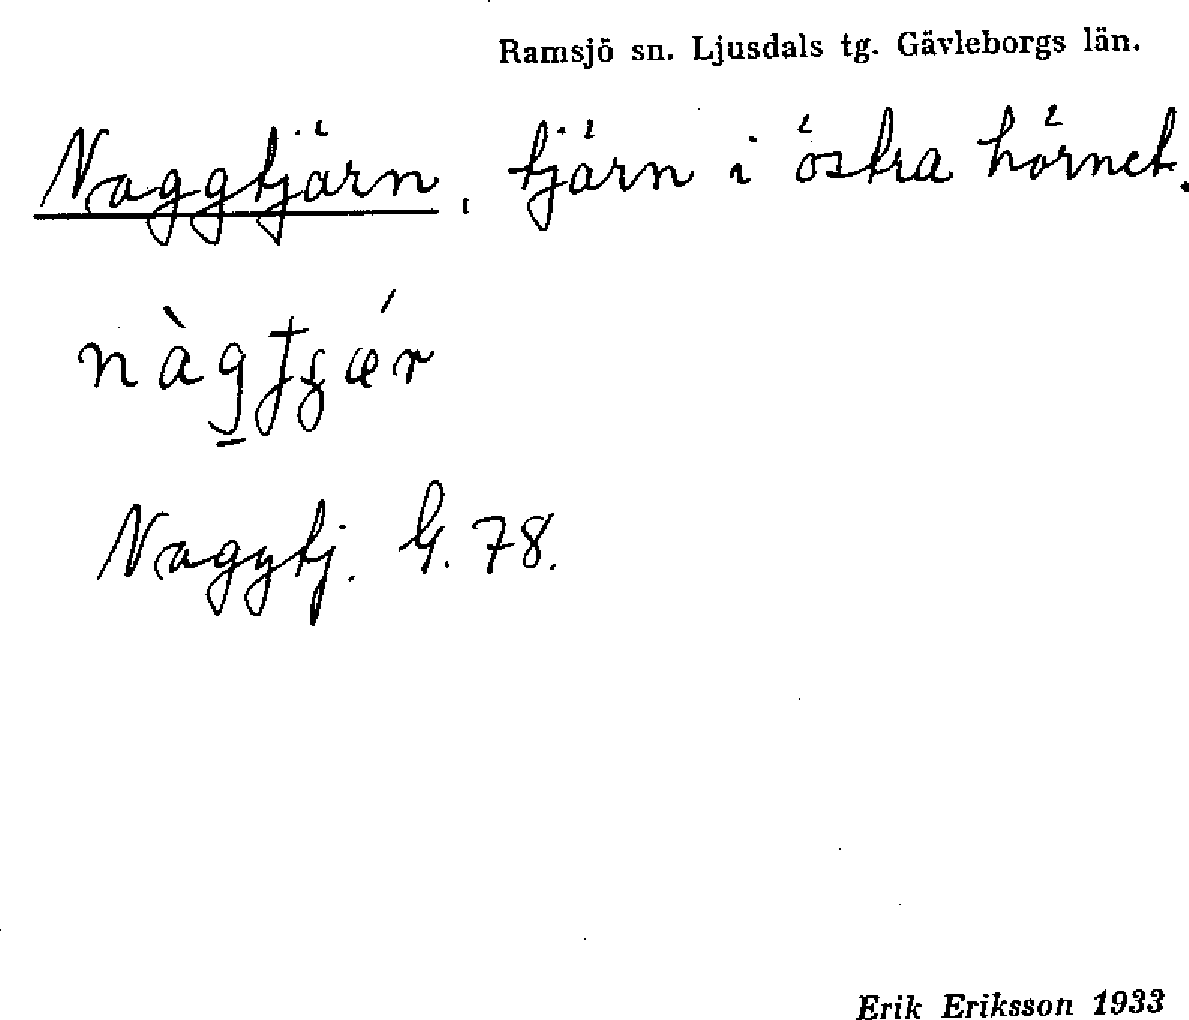 Ramsjö sn. Ljusdals tg. Gävleborgs län.
Naggtjärn, tjärn i östra hörnet.
Naggtj. G. 78.
Erik Eriksson 1933